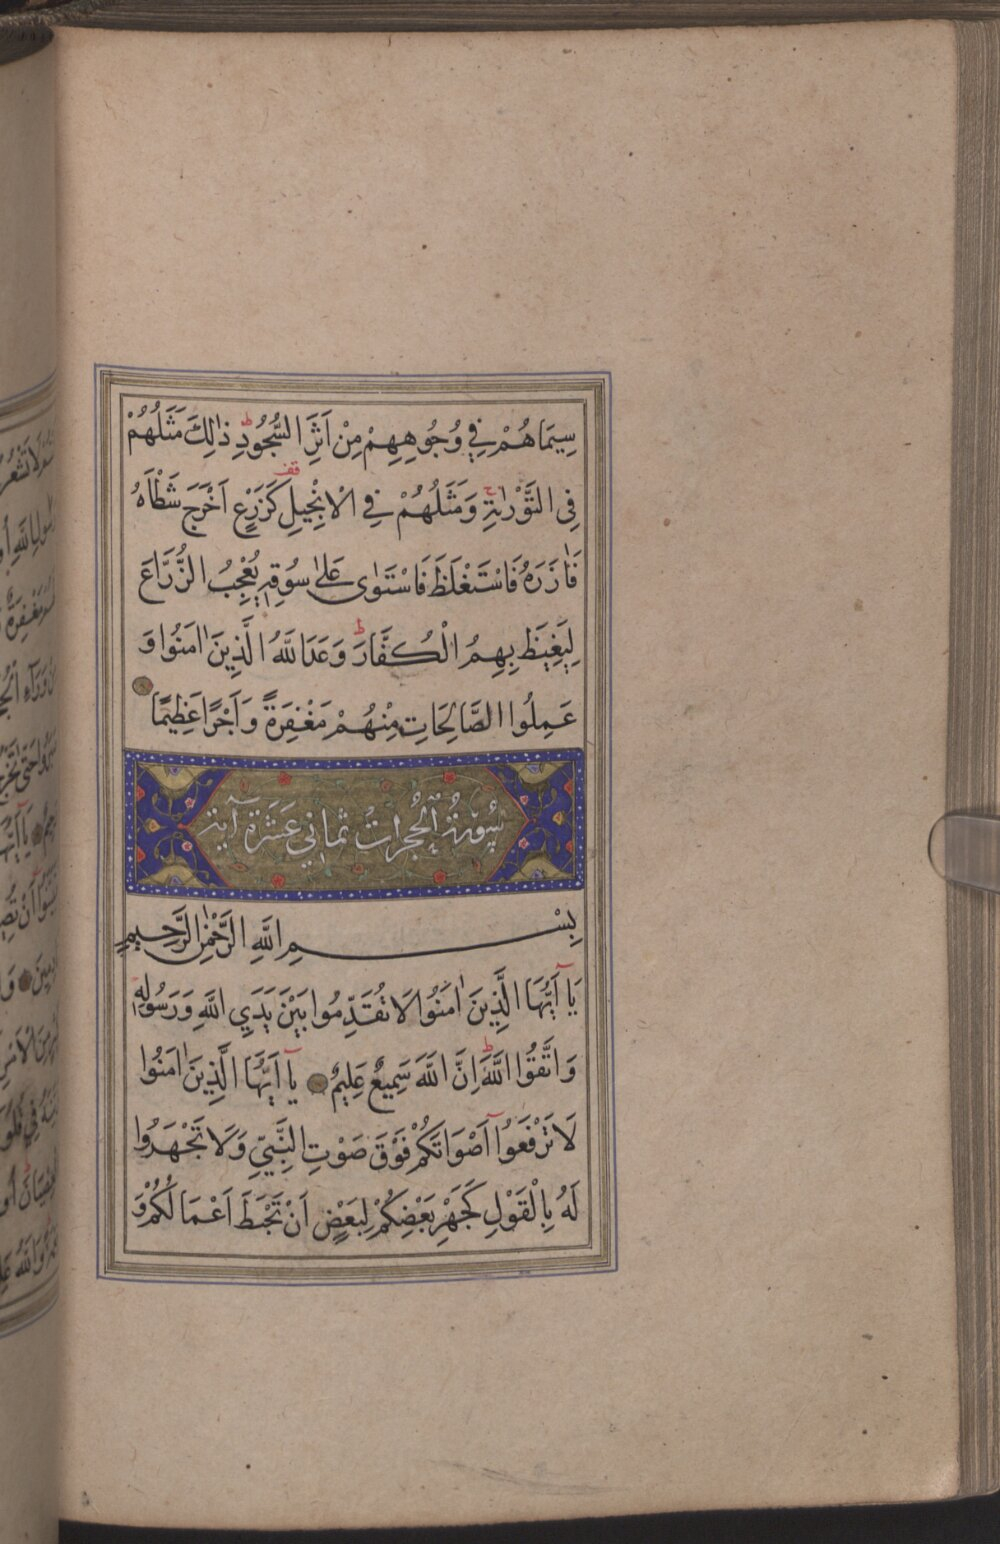 سِيمَاهُمْ فِي وُجُوهِهِمْ مِنْ اَثَرِ السُّجُودِ ط ذٰلِكَ مَثَلُهُمْ
فِى التَّوْرٰيةِ ج وَمَثَلُهُمْ فِي الْاِنْجِيلِ قف كَزَرْعٍ اَخْرَجَ شَطْاَهُ
فَاٰزَرَهُ فَاسْتَغْلَظَ فَاسْتَوٰى عَلٰى سُوقِهِ يُعْجِبُ الزُّرَّاعَ
لِيَغِيظَ بِهِمُ الْكُفَّارَ ط وَعَدَ اللَّهُ الَّذِينَ اٰمَنُوا وَ
عَمِلُوا الصَّالِحَاتِ مِنْهُمْ مَغْفِرَةً وَاَجْرًا عَظِيمًا
سُورَةُ الْحُجُرَاتِ ثماني عَشَرَةَ آية
بِسْمِ اللَّهِ الرَّحْمٰنِ الرَّحِيمِ
يَا اَيُّهَا الَّذِينَ اٰمَنُوا لَا تُقَدِّمُوا بَيْنَ يَدَيِ اللَّهِ وَرَسُولِهِ
وَاتَّقُوا اللَّهَ ط اِنَّ اللَّهَ سَمِيعٌ عَلِيمٌ يَا اَيُّهَا الَّذِينَ اٰمَنُوا
لَا تَرْفَعُوا اَصْوَاتَكُمْ فَوْقَ صَوْتِ النَّبِيِّ وَلَا تَجْهَرُوا
لَهُ بِالْقَوْلِ كَجَهْرِ بَعْضِكُمْ لِبَعْضٍ اَنْ تَحْبَطَ اَعْمَالُكُمْ وَ